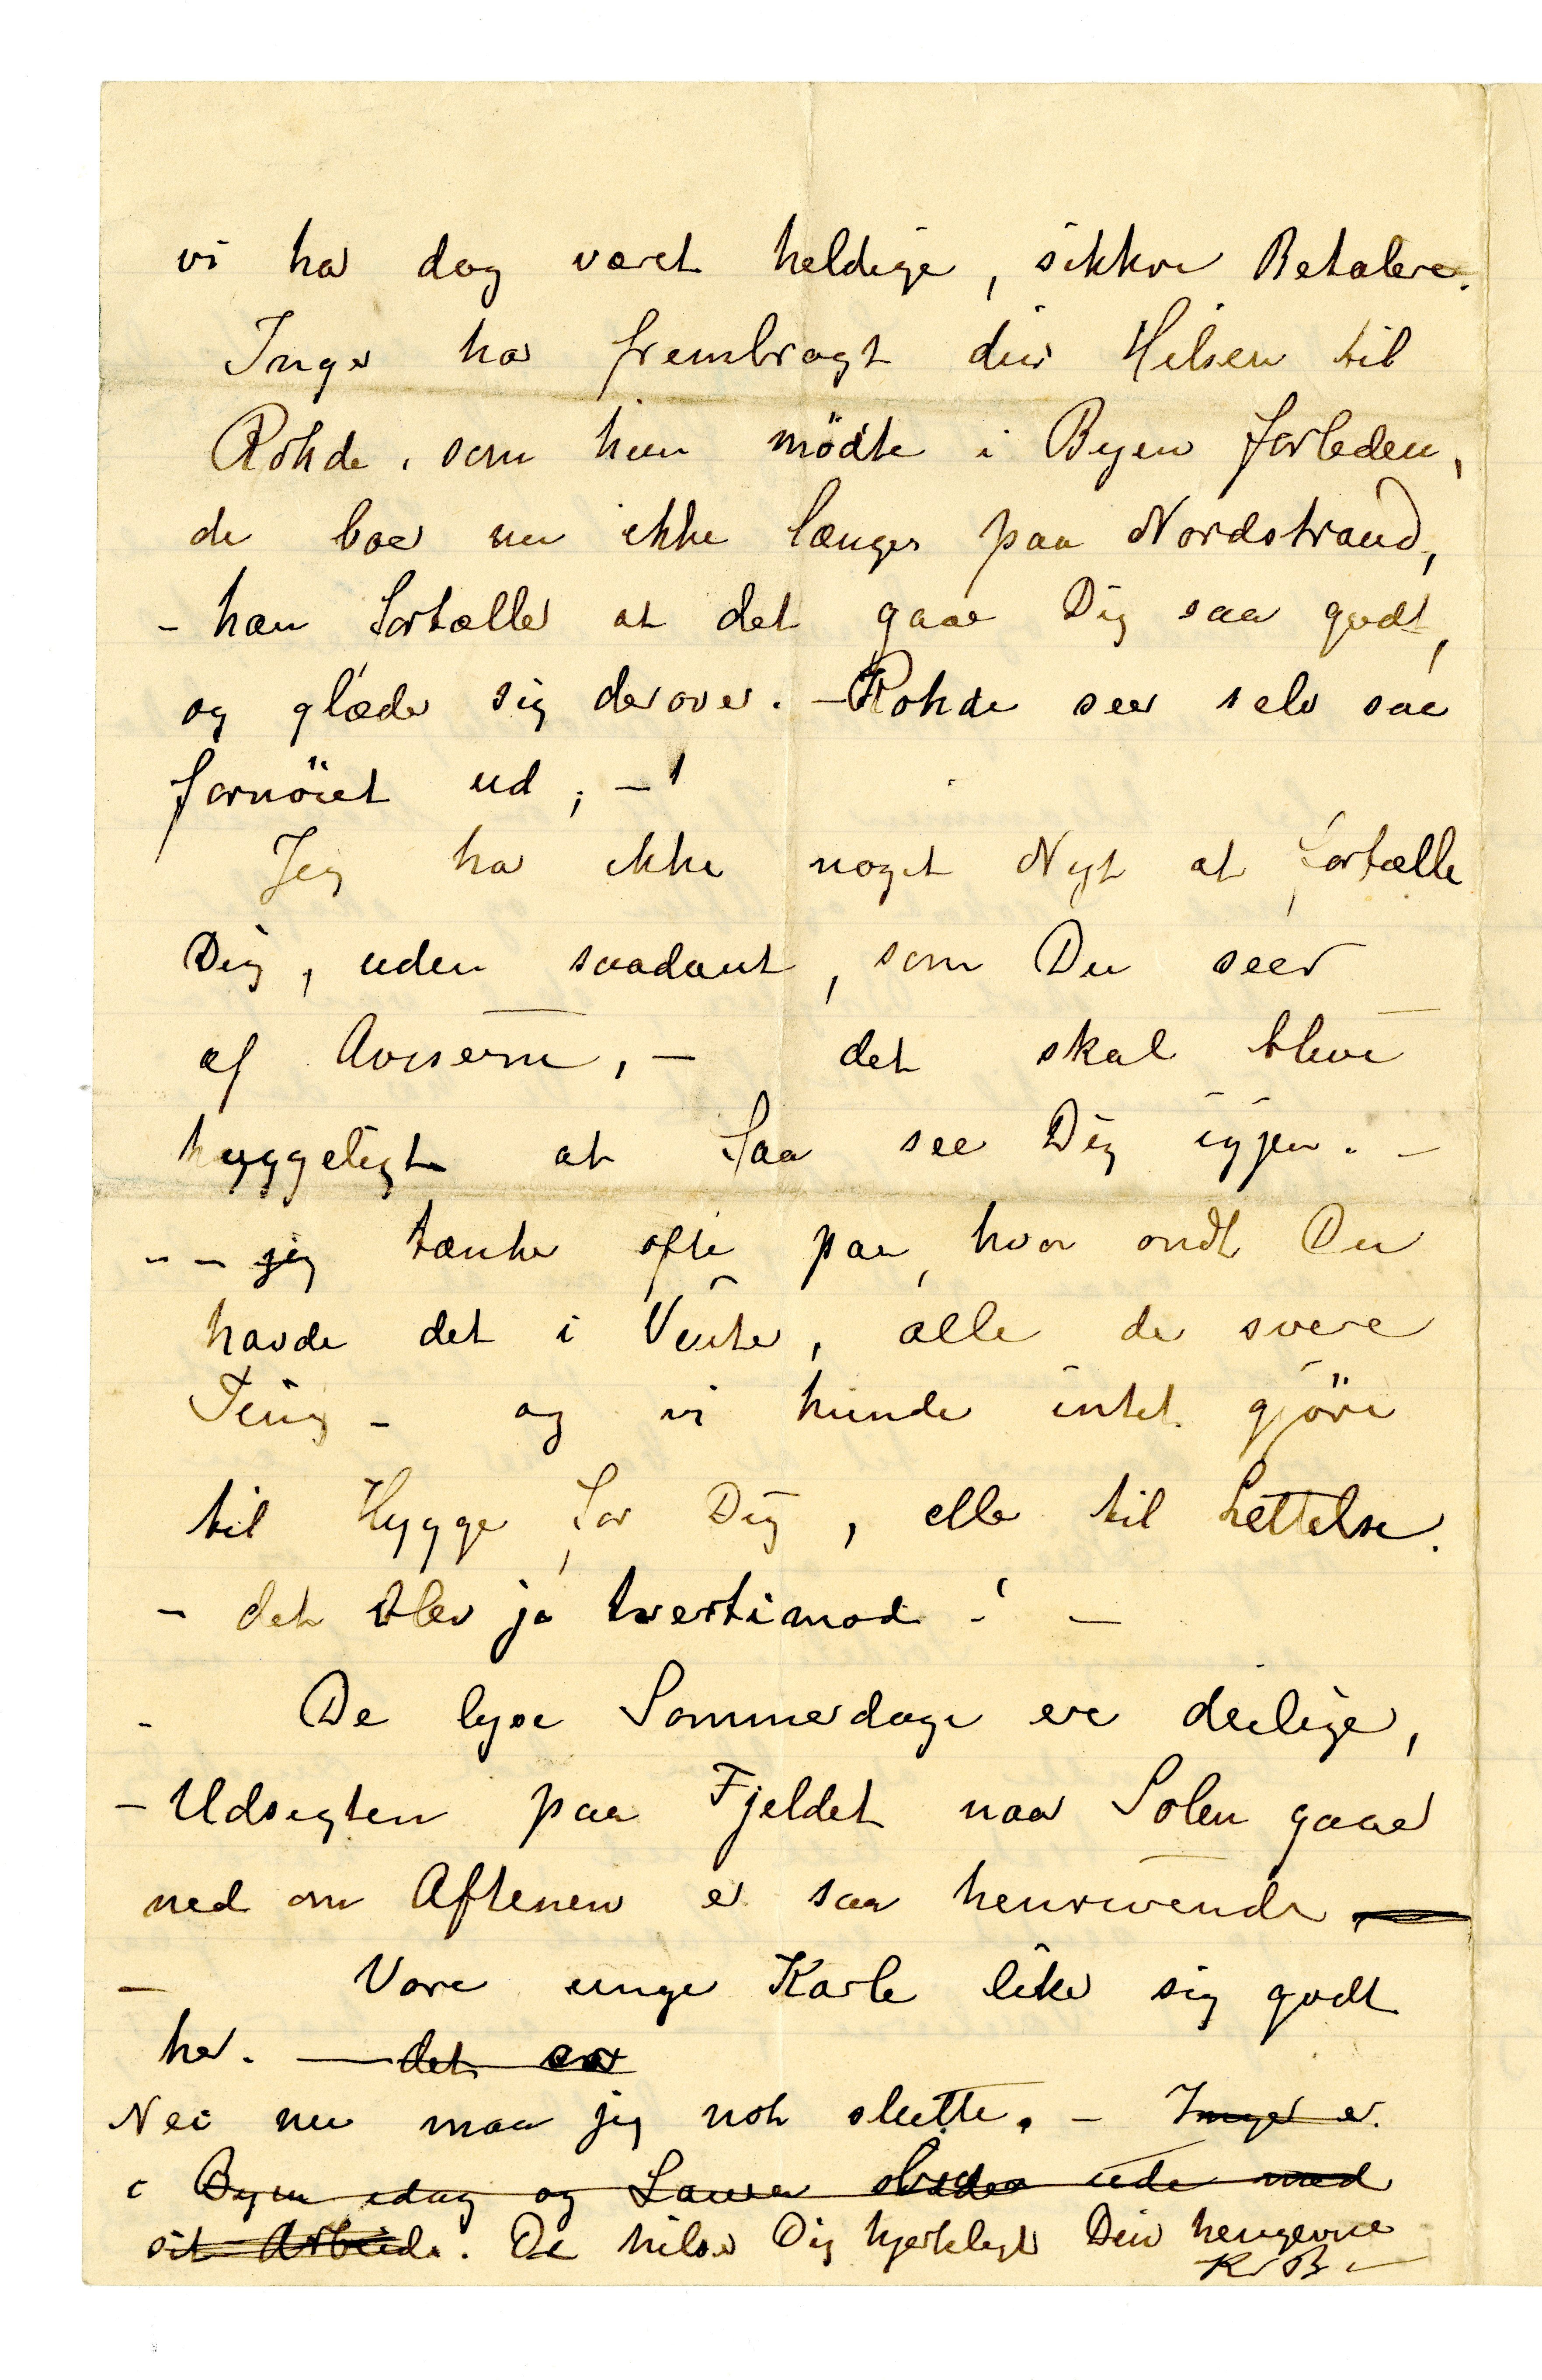 vi har dog været heldige, sikkre Betalere.
Inger har frembragt din Hilsen til
Rohde, som hun mödte i Byen forleden,
de boer nu ikke længer paa Nordstrand,
- han fortæller at det gaar Dig saa godt,
og glæder sig derover. - Rohde seer selv saa
fornöiet ud, - !
Jeg har ikke noget Nyt at fortælle
Dig, uden saadant, som Du seer
af Aviserne, - det skal blive
hyggeligt at faa see Dig igjen. -
- - jeg tænker ofte paa, hvor ondt Du
havde det i Vinter, alle de svere
Ting - og vi kunde intet gjöre
til Hygge for Dig, eller til Lettelse.
- det blev jo tvertimod - ! -
- De lyse Sommerdage ere deilige,
- Udsigten paa Fjeldet naar Solen gaaer
ned om Aftenen er saa henrivende
- Vore unge Karle liker sig godt
her. - det er
Nei nu maa jeg nok slutte. - Inger er
i Byen idag og Laura ude med
sit Arbeide. De hilser Dig hjerteligt Din hengivne
K B -